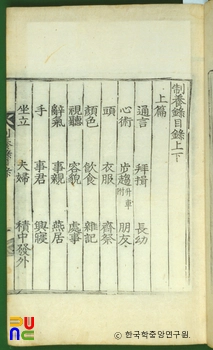 制養錄目錄上下
上篇
通言 拜揖 長幼
心術 步趨升車附 朋友
頭 衣服 齋祭
顔色 飮食 雜記
視聽 容貌 處事
辭氣 事親 燕居
手 事君 興寢
坐立 夫婦 積中發外
한국학중앙연구원